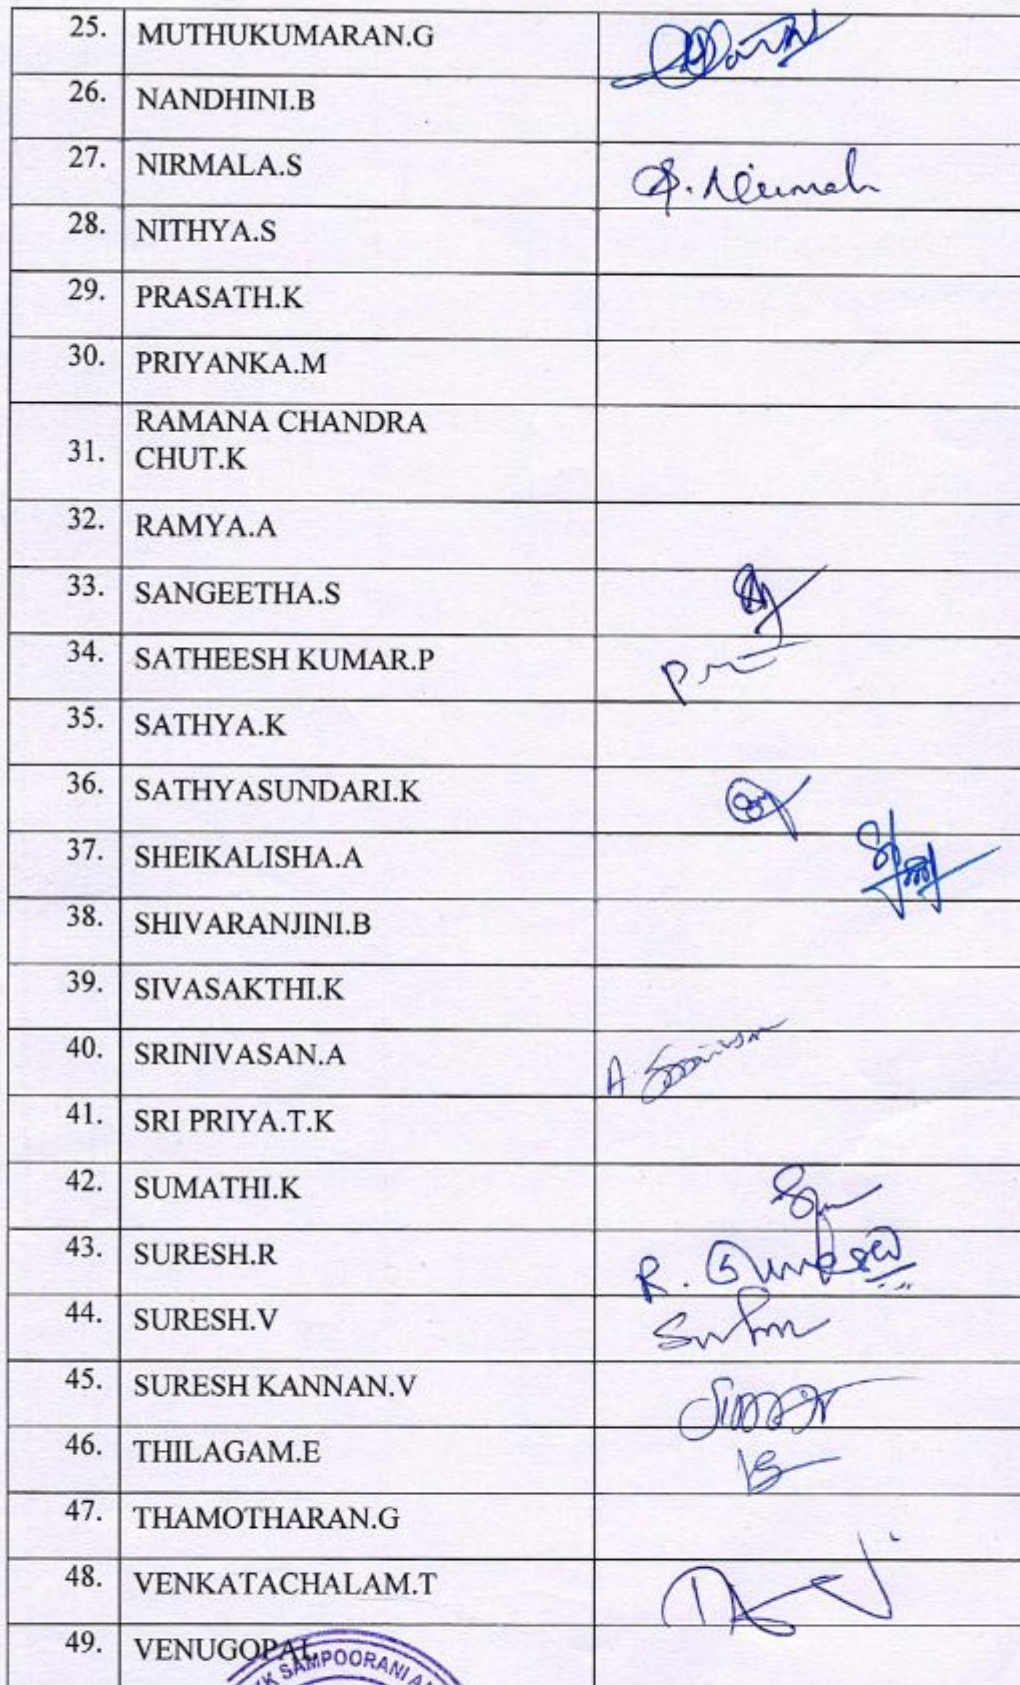 25. MUTHUKUMARAN.G
26. NANDHINI.B
27. NIRMALA.S S. Nirmala
28. NITHYA.S
29. PRASATH.K
30. PRIYANKA.M
RAMANA CHANDRA
31. CHUT.K
32. RAMYA.A
33. SANGEETHA.S
34. SATHEESH KUMAR.P
35. SATHYA.K
36. SATHYASUNDARI.K
37. SHEIKALISHA.A
38. SHIVARANJINI.B
39. SIVASAKTHI.K
40. SRINIVASAN.A A.
41. SRI PRIYA.T.K
42. SUMATHI.K
43. SURESH.R R.
44. SURESH.V
45. SURESH KANNAN.V
46. THILAGAM.E
47. THAMOTHARAN.G
48. VENKATACHALAM.T
49. VENUGOPAL
SAMPOORANI